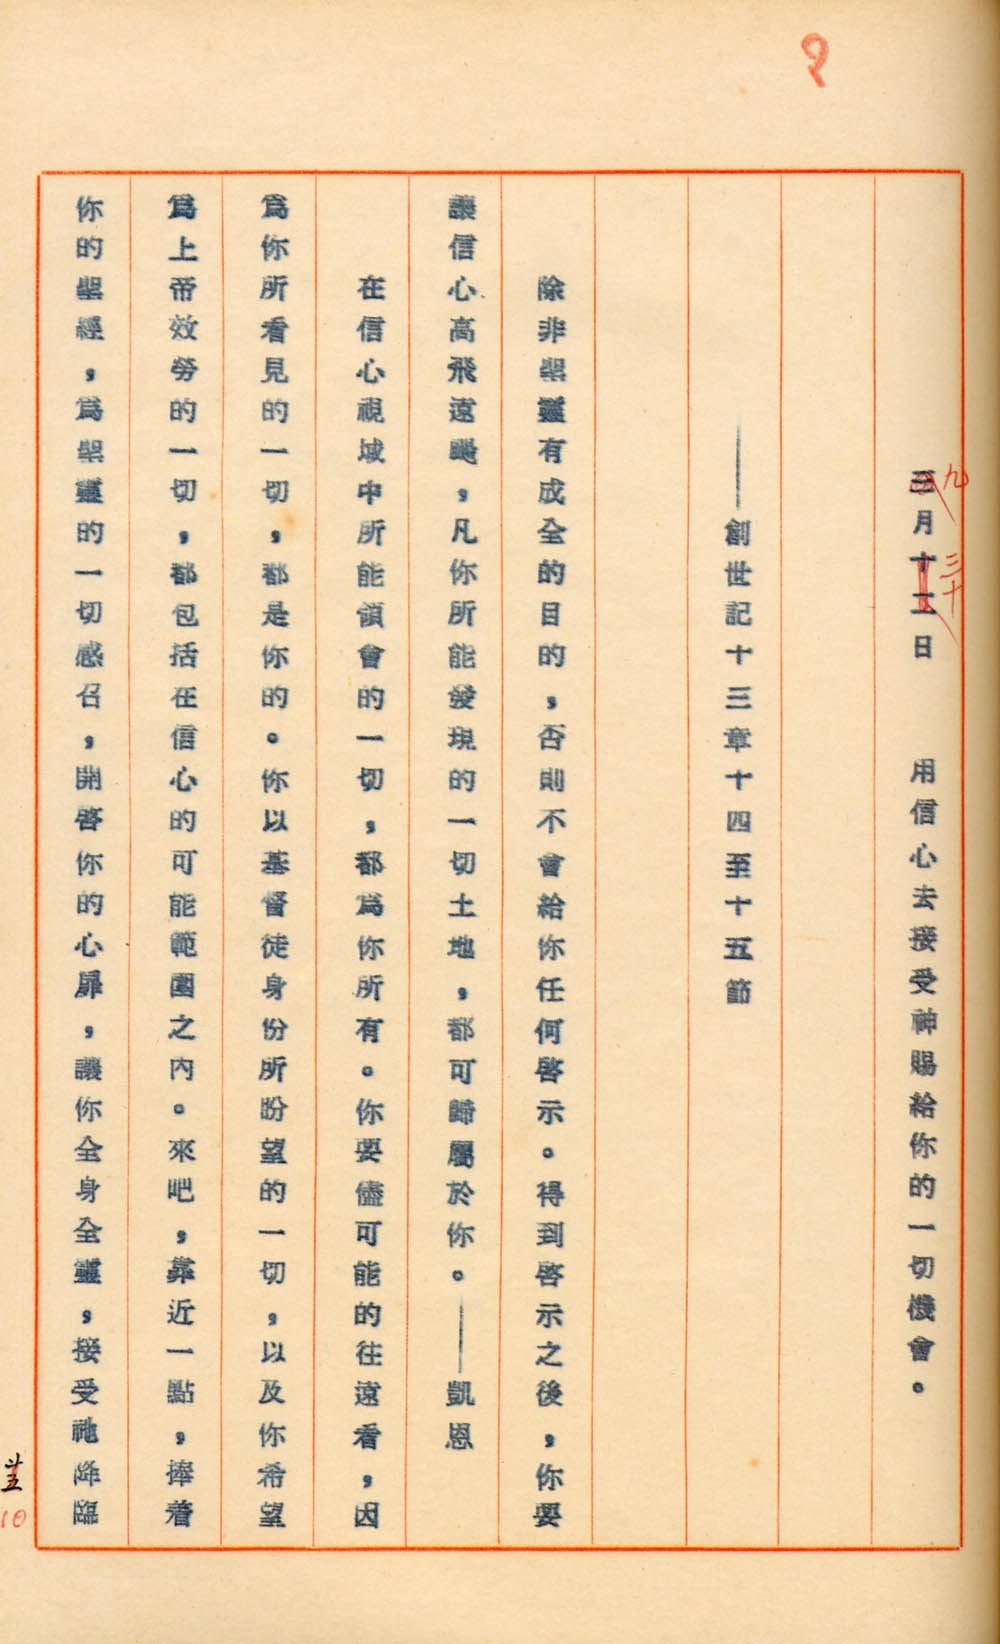 三月十二日　用信心去接受神賜給你的一切機會。
九
三十
——創世記十三章十四至十五節
除非聖靈有成全的目的，否則不會給你任何啓示。得到啓示之後，你要
讓信心高飛遠颺，凡你所能發現的一切土地，都可歸屬於你。——凱恩
在信心視域中所能領會的一切，都爲你所有。你要儘可能的往遠看，因
爲你所看見的一切，都是你的。你以基督徒身份所盼望的一切，以及你希望
爲上帝效勞的一切，都包括在信心的可能範圍之內。來吧，靠近一點，捧着
你的聖經，爲聖靈的一切感召，開啓你的心扉，讓你全身全靈，接受祂降臨
10